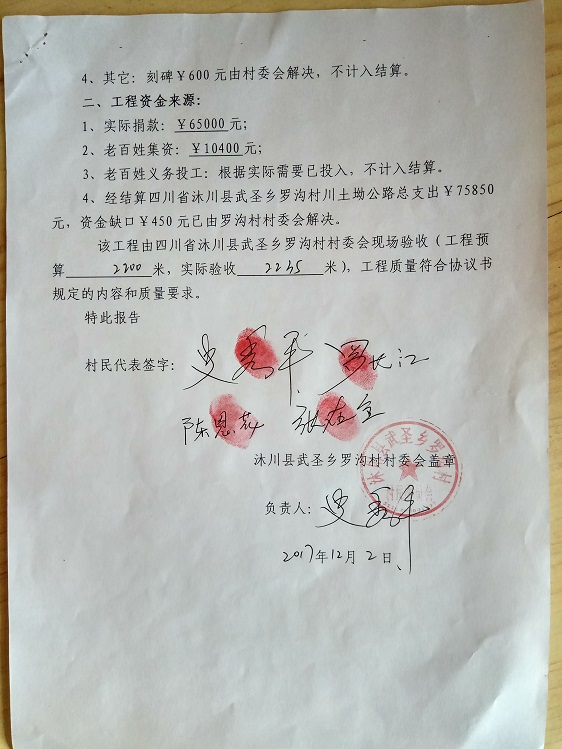 4、其它：刻碑￥600元由村委会解决，不计入结算。
二、工程资金来源：
1、实际捐款：￥65000元；
2、老百姓集资：￥10400元；
3、老百姓义务投工：根据实际需要已投入，不计入结算。
4、经结算四川省沐川县武圣乡罗沟村川土坳公路总支出￥75850
元，资金缺口￥450元已由罗沟村村委会解决。
该工程由四川省沐川县武圣乡罗沟村村委会现场验收（工程预
算2200米，实际验收2235米），工程质量符合协议书
规定的内容和质量要求。
特此报告
村民代表签字：
沐川县武圣乡罗沟村村委会盖章
沐川县武圣乡罗沟村
负责人：
2017年12月2日